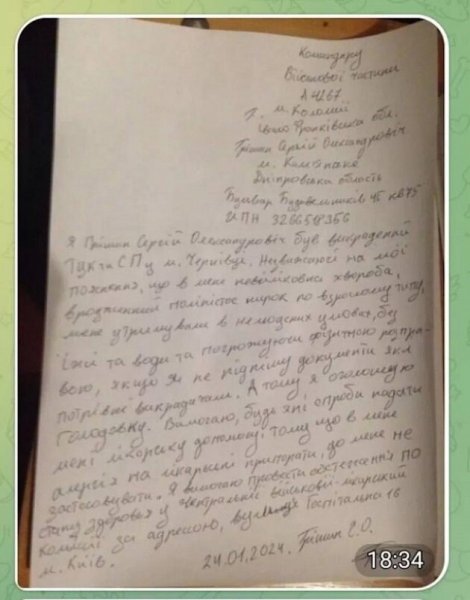 Командиру
Військової частини
А 4267
м. Коломиї
Івано Франківська обл.
Грішин Сергій Олександрович
м. Кам'янське
Дніпровська область
Бульвар Будівельників 45 кв 75
ІПН
Я Грішин Сергій Олександрович був викрадений
ТЦК та СП у м. Чернівці. Незважаючи на мої
пояснення, що в мене невиліковна хвороба,
вроджений полікістоз нирок по взрослому типу,
мене утримували в нелюдских умовах, без
їжі та води та погрожуючи фізичною розпра-
вою, якщо я не підпишу документи які
потрібні викрадачам. А тому я оголошую
Голодовку. Вимагаю, будь які спроби надати
мені лікарську допомогу, тому що в мене
алергія на лікарські препарати, до мене не
застосовувати. Я вимагаю провести обстеження по
стану здоровья у центральній військової-лікарский
комісії за адресою, вулиця Госпітальна 16
м. Київ.
24.01.2024. Грішин С.О.
18:34